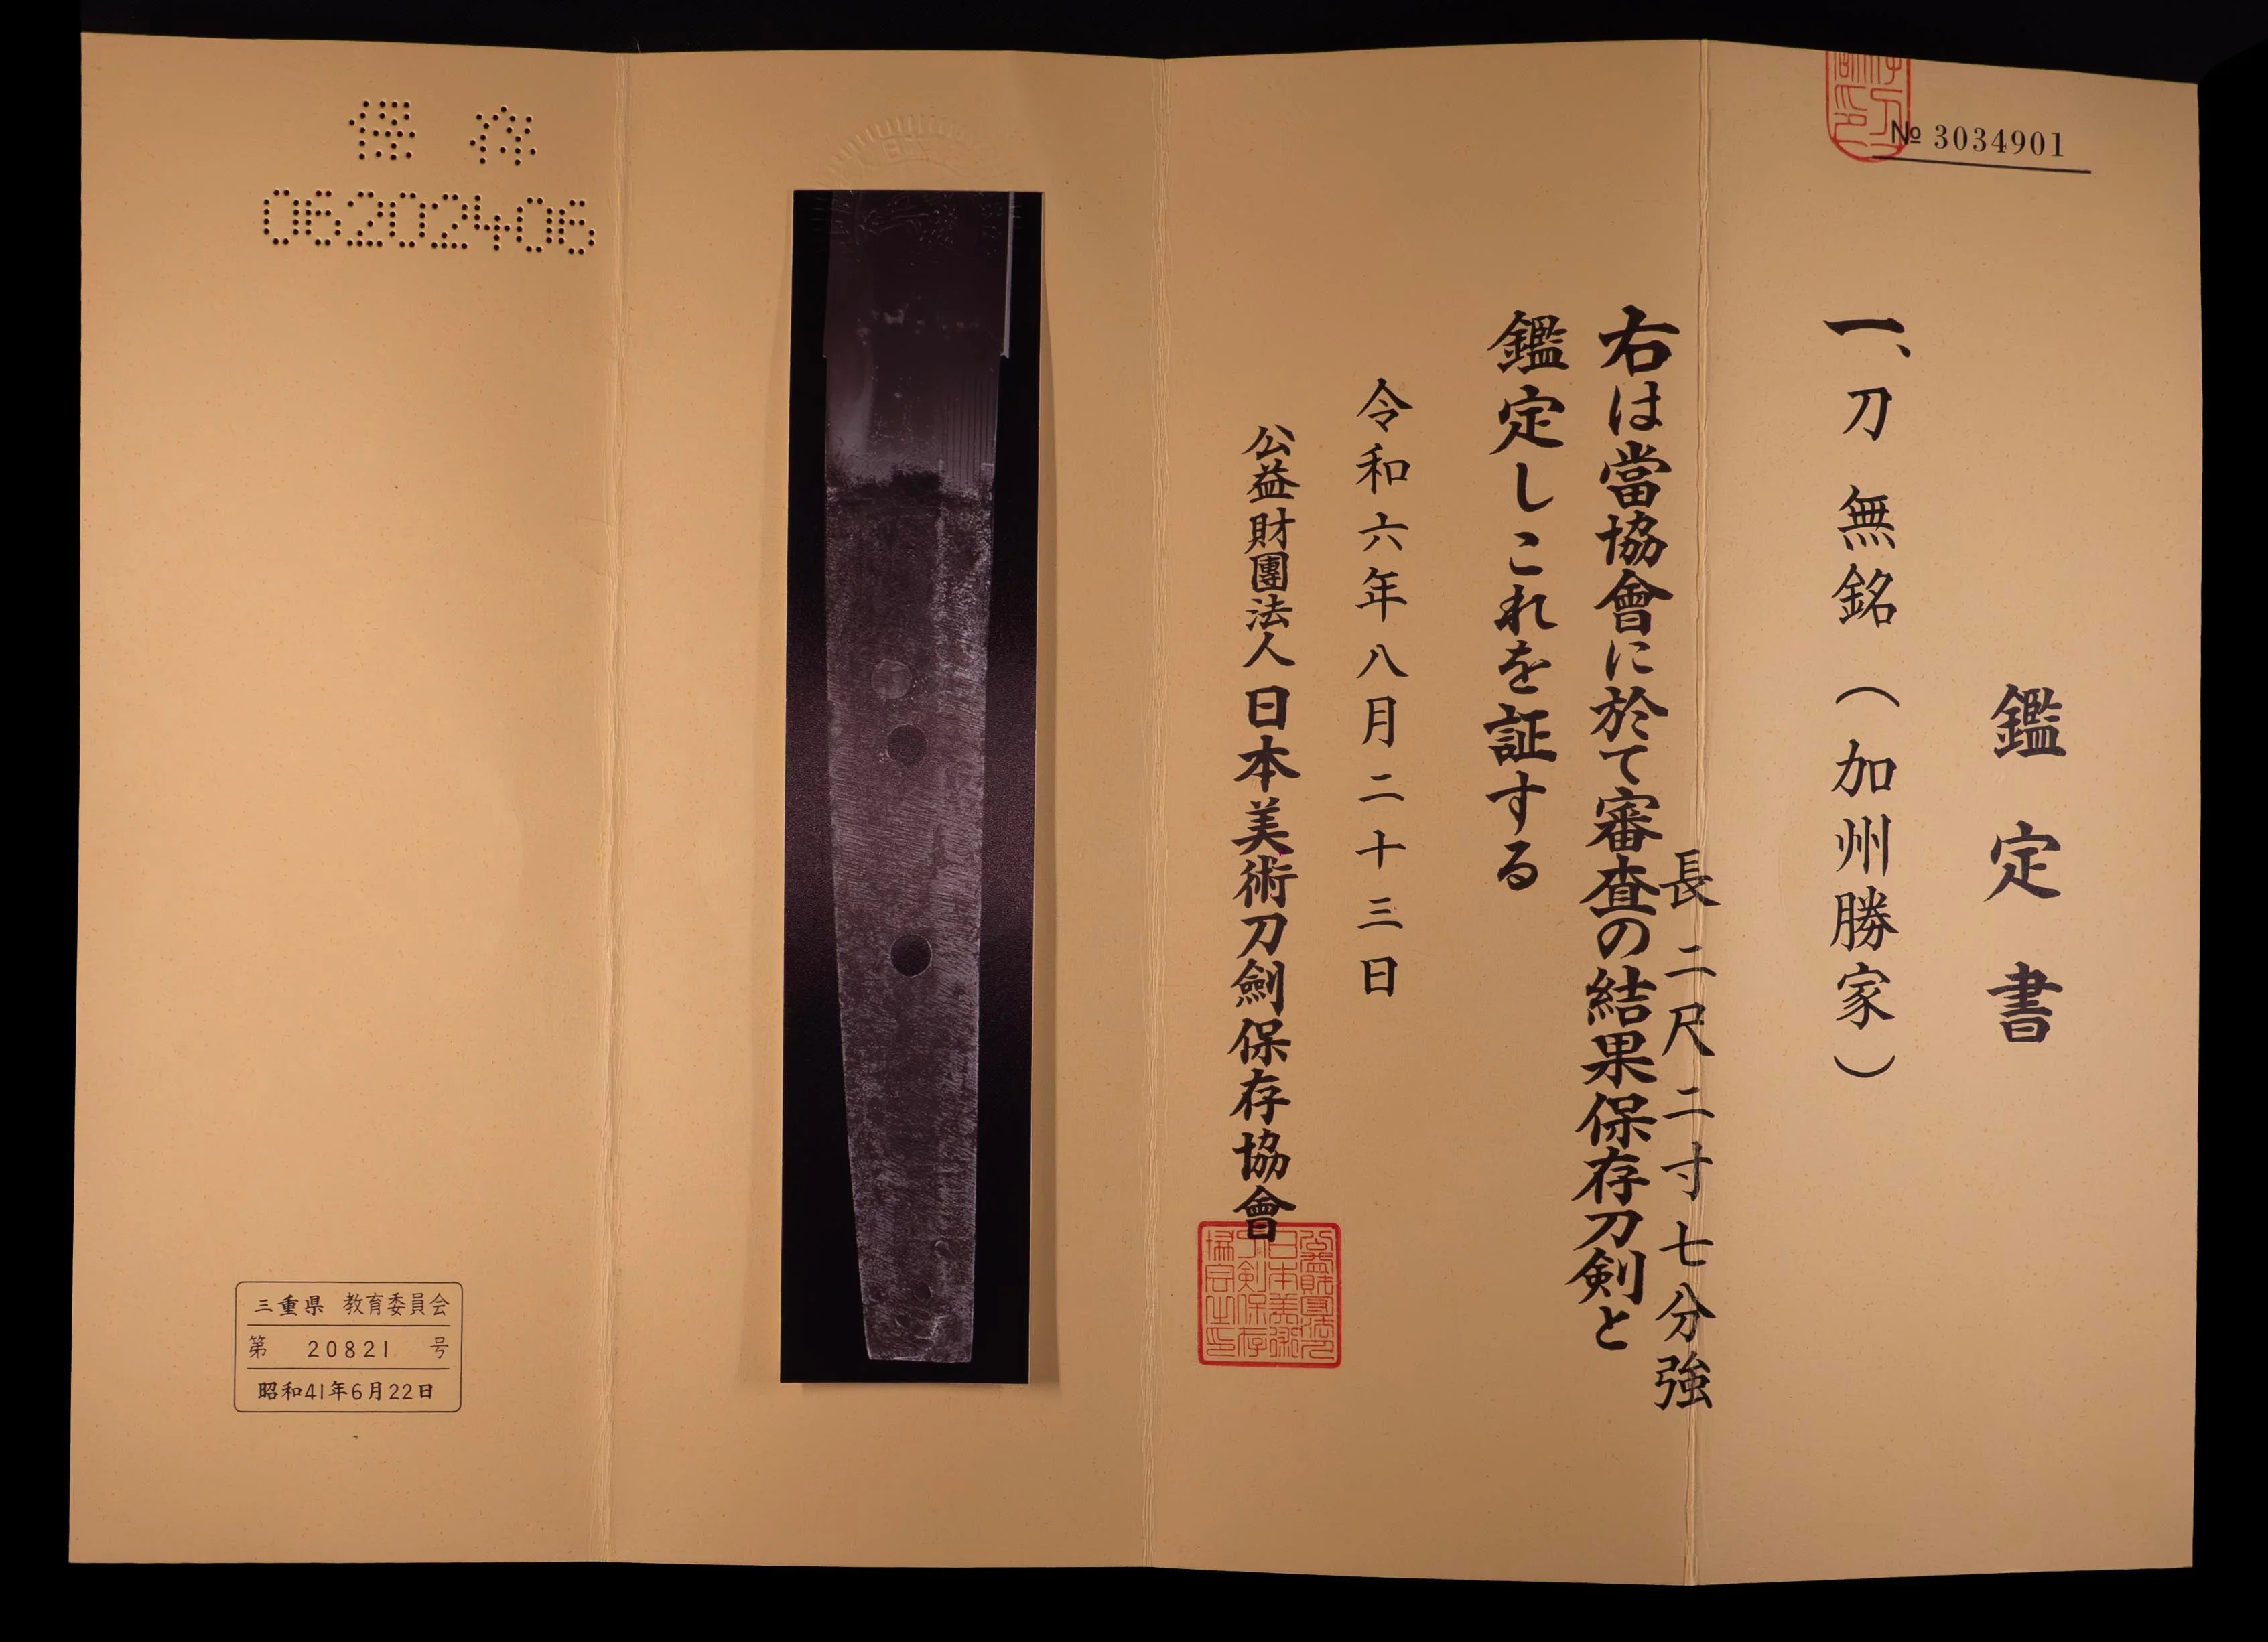 № 3034901
鑑定書
一、刀 無銘（加州勝家）
長 二尺二寸七分強
右は當協會に於て審査の結果保存刀剣と
鑑定しこれを証する
令和六年八月二十三日
公益財團法人日本美術刀劍保存協會
保存
06202406
三重県 教育委員会
第 20821 号
昭和41年6月22日